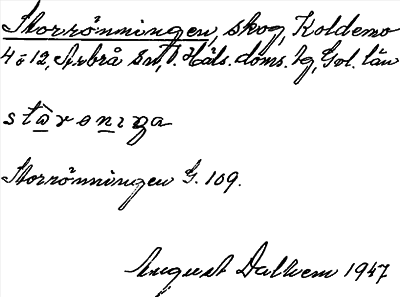 Storrönningen, skog, Koldemo
4 o 12, Arbrå sn, V. Häls. doms. tg, Gvl. län
Storrönningen G. 109.
August Dallvem 1947